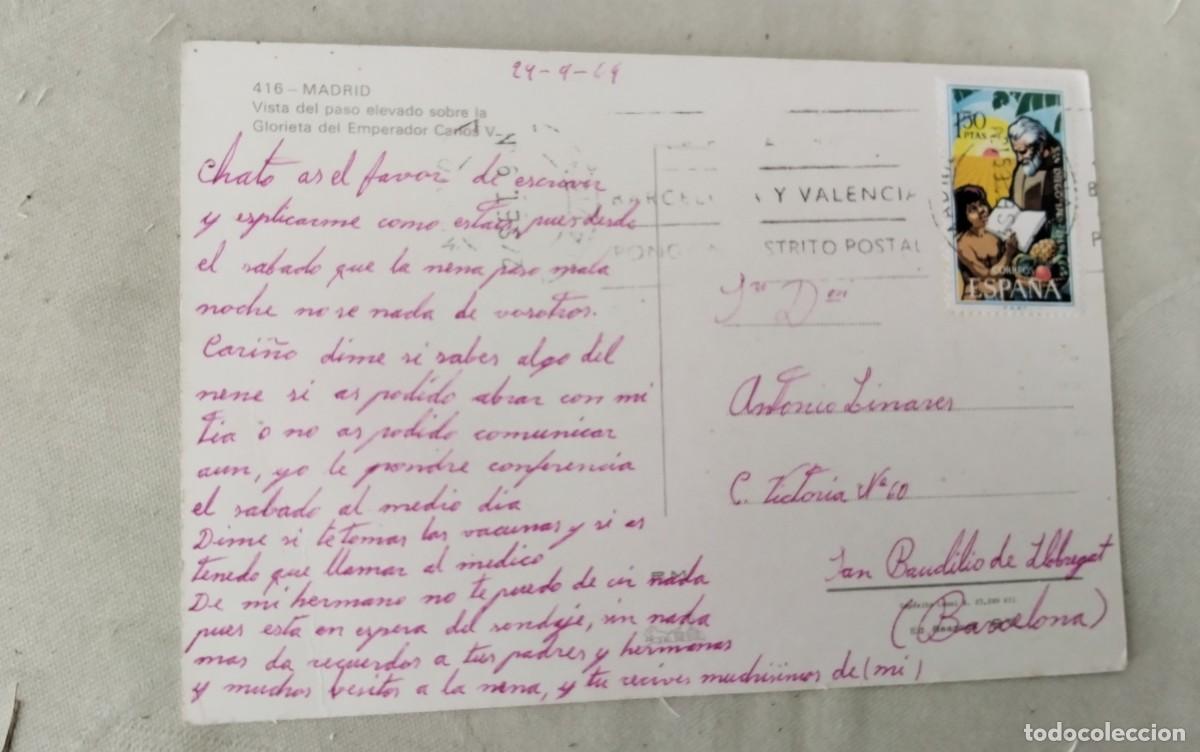 24-9-69
416 – MADRID
Vista del paso elevado sobre la
Glorieta del Emperador Carlos V
Chato as el favor de escrivir
y esplicarme como estais pues desde
el sabado que la nena paso mala
noche no se nada de vosotros.
Cariño dime si sabes algo del
nene si as podido abrar con mi
tia o no as podido comunicar
aun, yo le pondre conferencia
el sabado al medio dia
Dime si te tomas las vacunas y si as
tenedo que llamar al medico
De mi hermano no te puedo de cir nada
pues esta en espera del sondaje, sin nada
mas da recuerdos a tus padres y hermanas
y muchos besitos a la nena, y tu recives muchisimos de (mi)
Y VALENCIA
STRITO POSTAL
1'50
PTAS
CORREOS
ESPAÑA
Sr Don
Antonio Linares
C. Victoria Nº 60
San Baudilio de Llobregat
(Barcelona)
todocoleccion